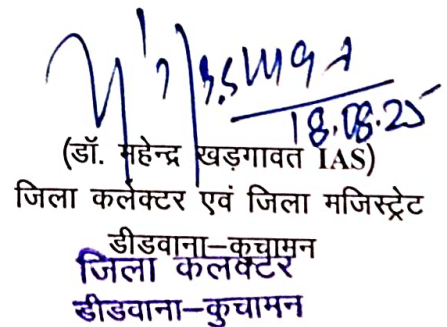 18.08.25
(डॉ. महेन्द्र खड़गावत IAS)
जिला कलेक्टर एवं जिला मजिस्ट्रेट
डीडवाना–कुचामन
जिला कलक्टर
डीडवाना–कुचामन